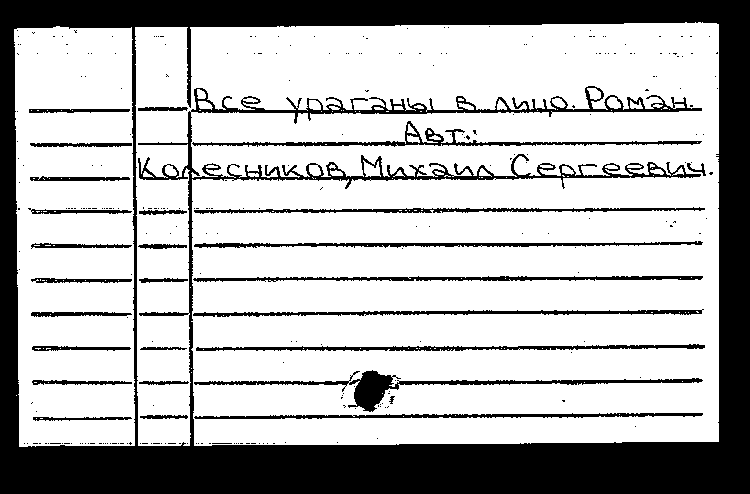 Все ураганы в лицо. Роман.
Авт.:
Колесников, Михаил Сергеевич.